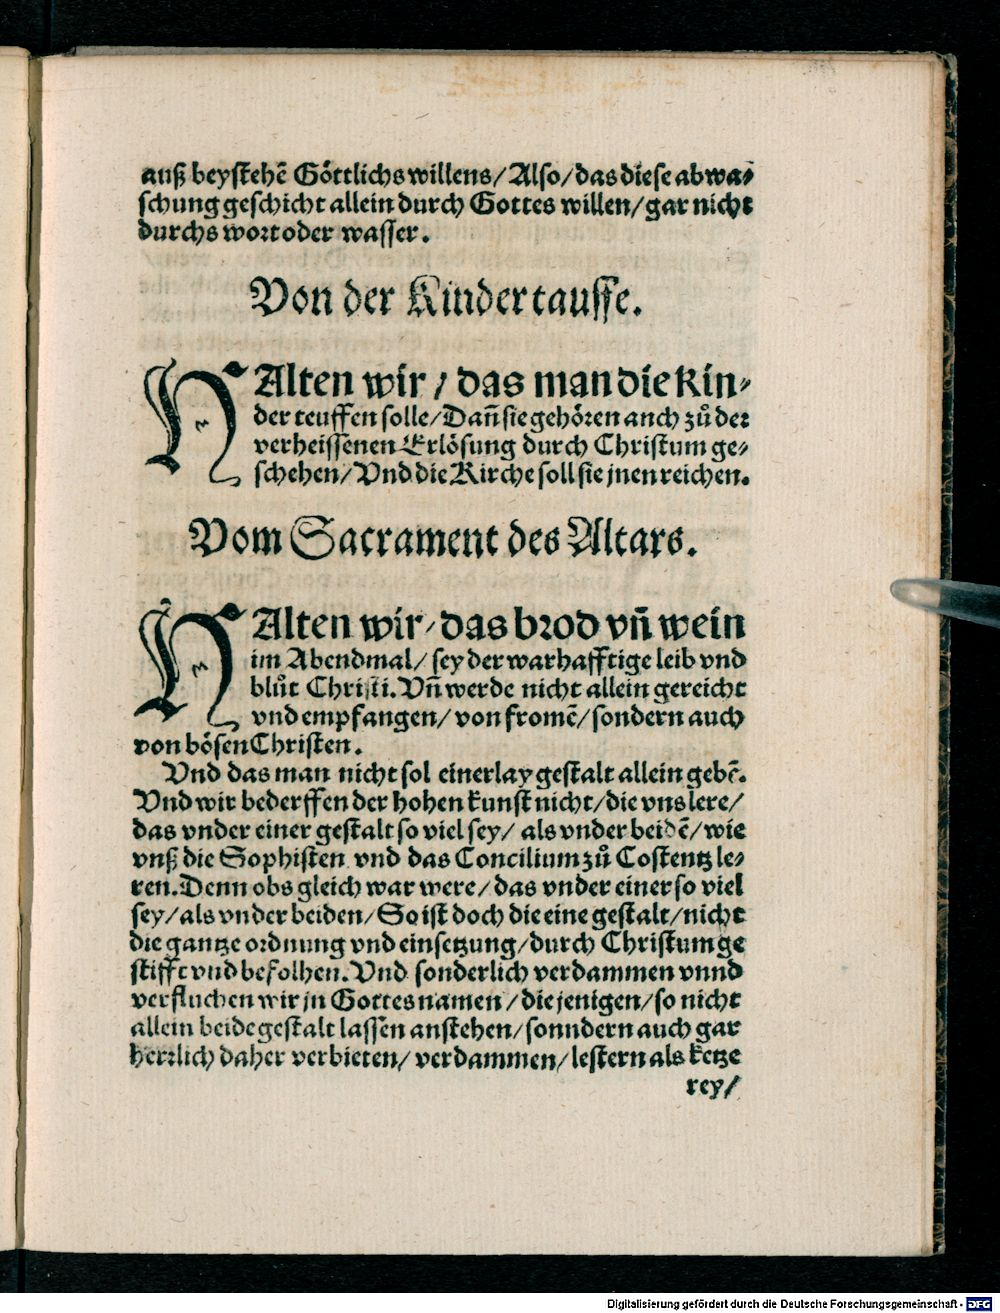 auß beystehẽ Göttlichs willens/ Also/ das diese abwa-
schung geschicht allein durch Gottes willen/ gar nicht
durchs wort oder wasser.
Von der Kindertauffe.
HAlten wir/ das man die kin-
der teuffen solle/ Dañ sie gehören auch zů der
verheissenen Erlösung durch Christum ge-
schehen/ Vnd die Kirche soll sie jnen reichen.
Vom Sacrament des Altars.
HAlten wir/ das brod vñ wein
im Abendmal/ sey der warhafftige leib vnd
blůt Christi. Vñ werde nicht allein gereicht
vnd empfangen/ von fromẽ/ sondern auch
von bösen Christen.
Vnd das man nicht sol einerlay gestalt allein gebẽ.
Vnd wir bederffen der hohen kunst nicht/ die vns lere/
das vnder einer gestalt so viel sey/ als vnder beidẽ/ wie
vnß die Sophisten vnd das Concilium zů Costentz le-
ren. Denn obs gleich war were/ das vnder einer so viel
sey/ als vnder beiden/ So ist doch die eine gestalt/ nicht
die gantze ordnung vnd einsetzung/ durch Christum ge
stifft vnd befolhen. Vnd sonderlich verdammen vnnd
verfluchen wir jn Gottes namen/ die jenigen/ so nicht
allein beide gestalt lassen anstehen/ sonndern auch gar
herrlich daher verbieten/ verdammen/ lestern als ketze
rey/
Digitalisierung gefördert durch die Deutsche Forschungsgemeinschaft - DFG